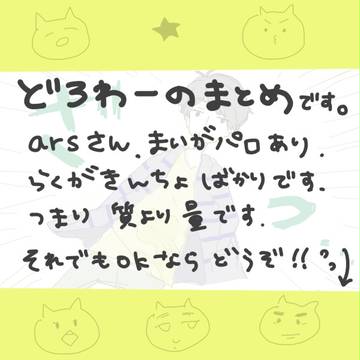 どろわーのまとめです。
arsさん、まいがパロあり、
らくがきんちょばかりです。
つまり 質より量です。
それでもokなら どうぞ!!